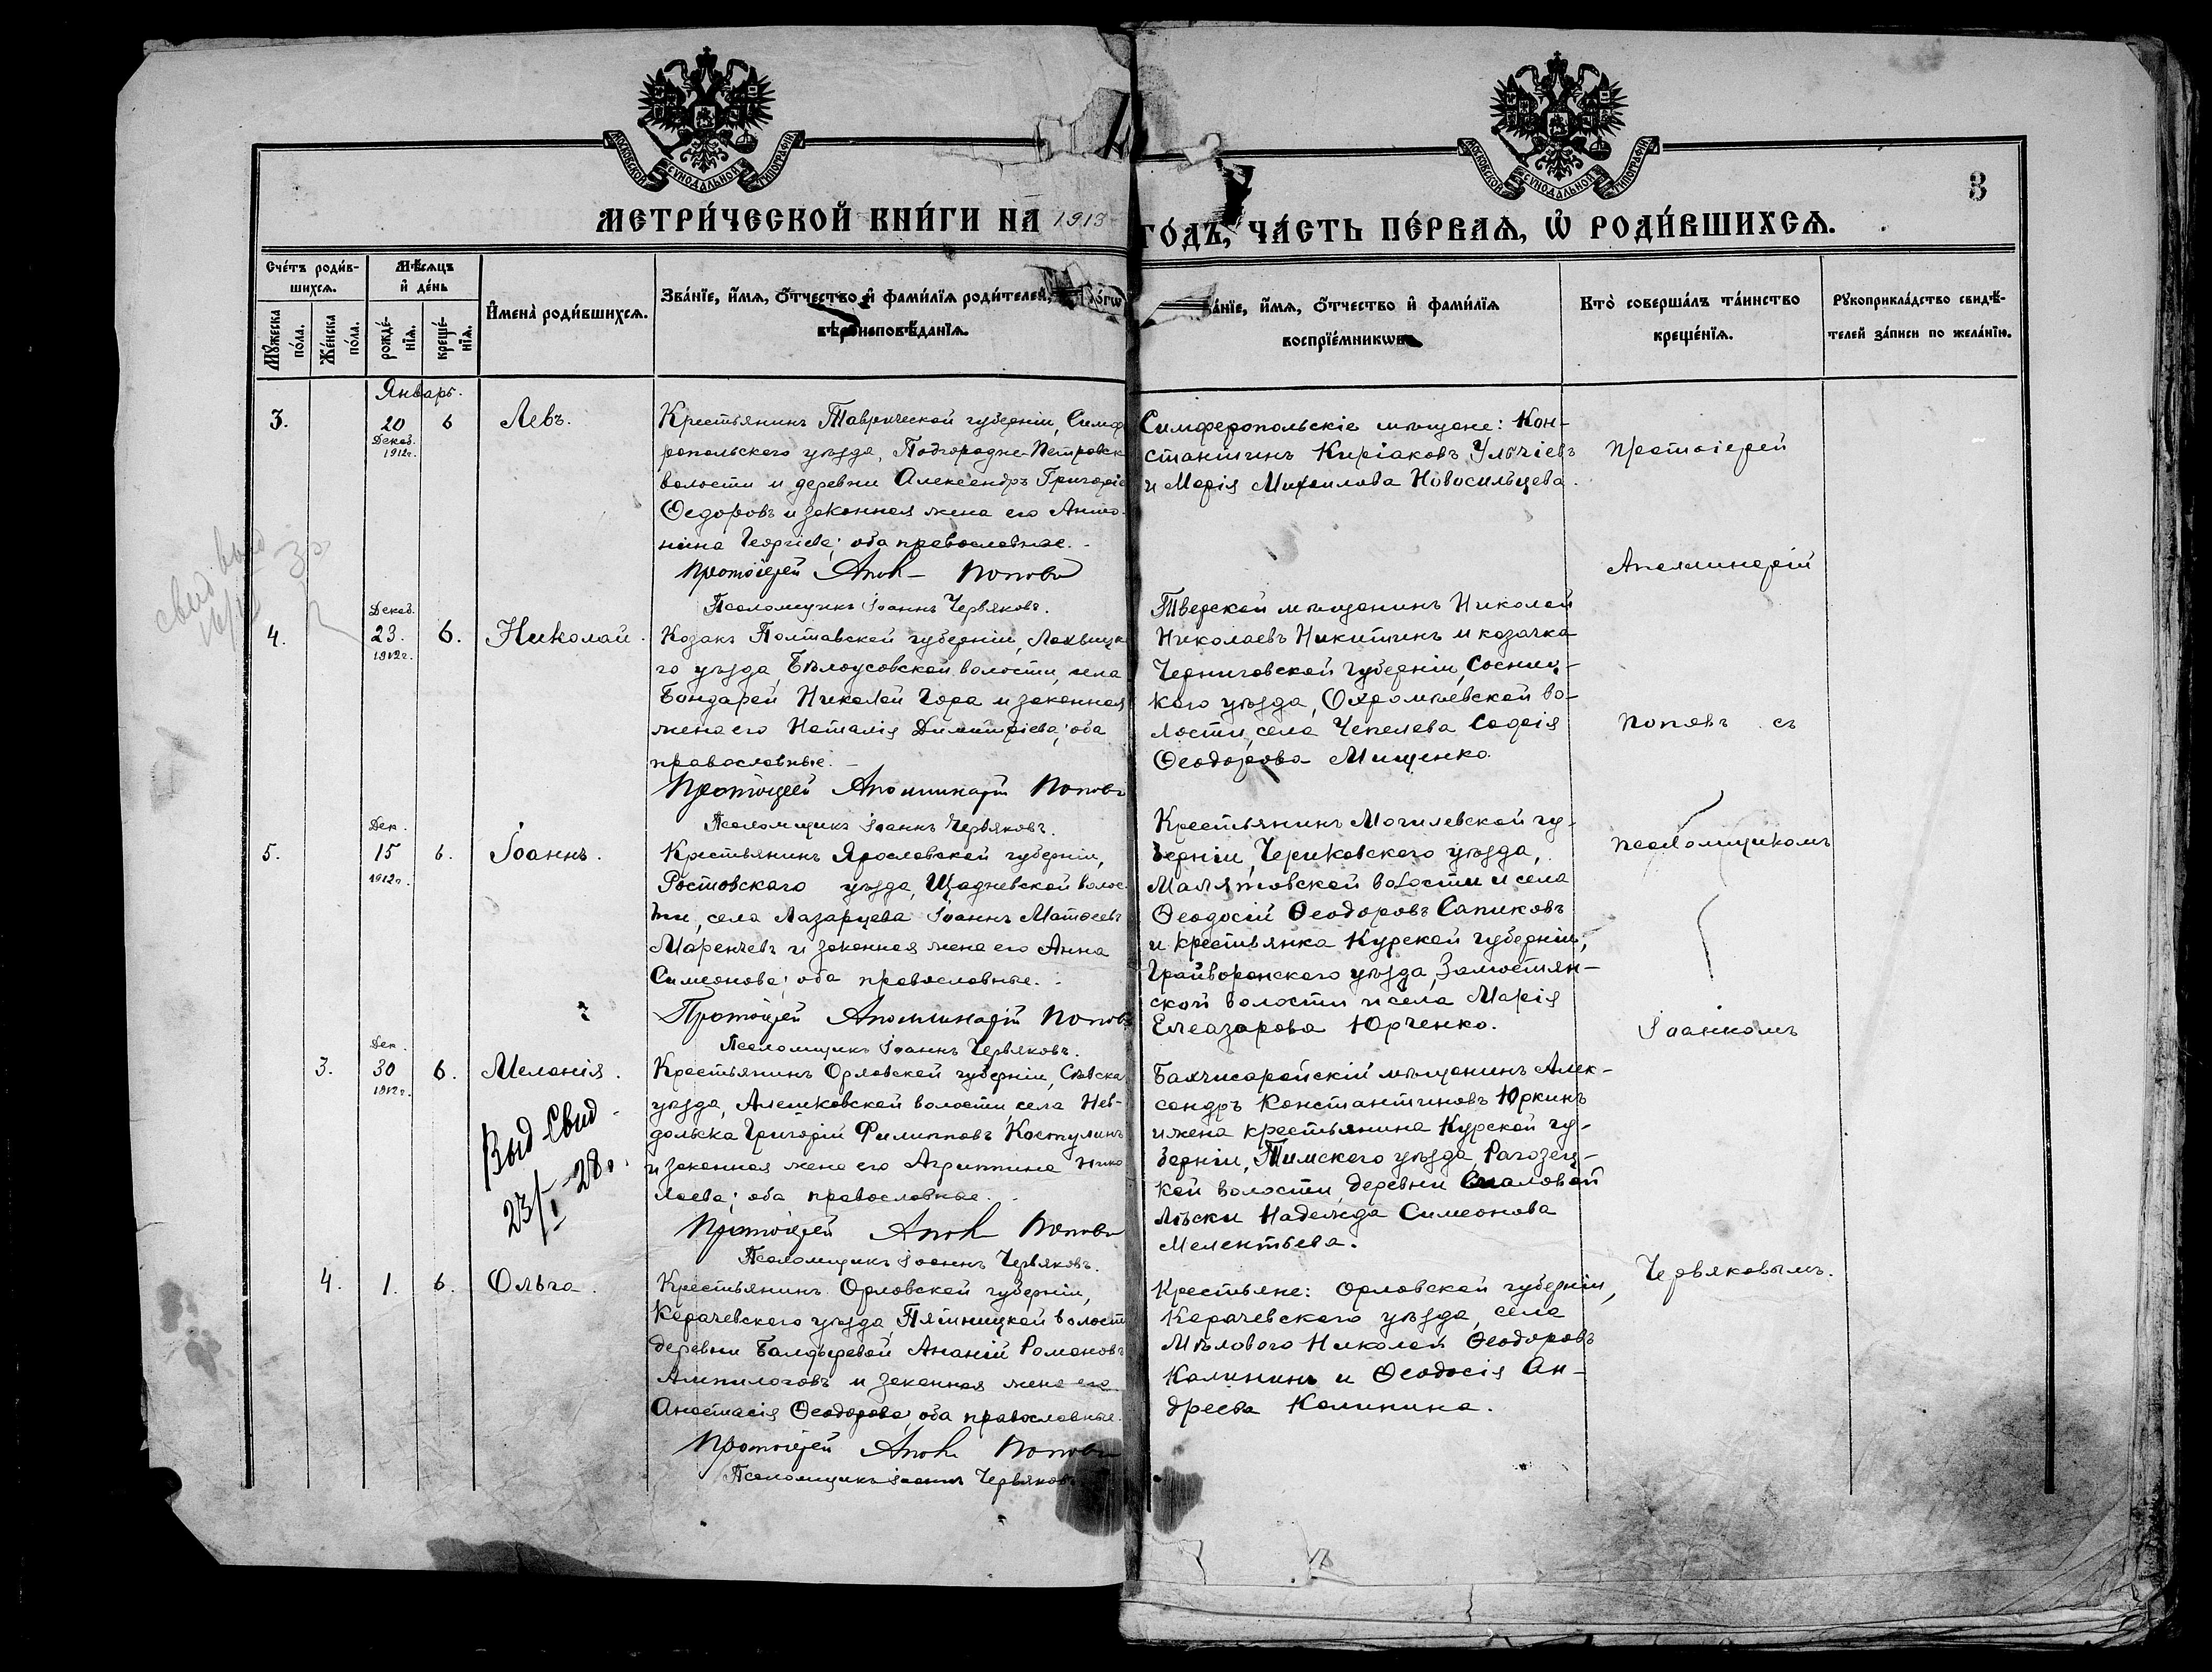 МОСКОВСКОЙ СѴНОДАЛЬНОЙ ТИПОГРАФІИ
МОСКОВСКОЙ СѴНОДАЛЬНОЙ ТИПОГРАФІИ
3
МЕТРИ́ЧЕСКОЙ КНИ́ГИ НА 1913 ГО́ДЪ, ЧА́СТЬ ПЕ́РВАѦ, Ѡ҆ РОДИ́ВШИХСѦ.
Сче́тъ роди́в-
шихсѧ.
Мꙋ́жеска по́ла.
Же́нска по́ла.
Мѣ́сѧцъ
и҆ де́нь
рожде́-
нїѧ.
креще́-
нїѧ.
И҆мена̀ роди́вшихсѧ.
Зва́нїе, и҆́мѧ, ѻ҆́тчество и҆ фами́лїѧ роди́телей,
вѣроисповѣ́данїѧ.
и҆́мѧ, ѻ҆́тчество и҆ фами́лїѧ
воспрїе́мникѡвъ
Кто̀ соверша́лъ та́инство
креще́нїѧ.
Рꙋкоприкла́дство свидѣ́-
телей за́писи по жела́нїю.
Январь.
3.
20
Декаб.
1912г.
6
Левъ.
Крестьянинъ Таврической губерніи, Симф
ропольскаго уѣзда, Подгородне-Петровск
волости и деревни Александръ Григоріе
Ѳедоровъ и законная жена его Анто-
нина Георгіева; оба православные.
Протоіерей Апол Поповъ
Псаломщикъ Іоаннъ Червяковъ.
Симферопольскіе мѣщане: Кон-
стантинъ Киріаковъ
и Марія Михаилова Новосильцева.
Протоіерей
Аполлинарій
4.
Декаб.
23.
1912г.
6.
Николай.
Козакъ Полтавской губерніи, Лохвицка
го уѣзда, Бѣлоусовской волости, села
Бондарей Николай Гора и законная
жена его Наталія Димитріева; оба
православные.
Протоіерей Аполлинарій Поповъ
Псаломщикъ Іоаннъ Червяковъ.
Тверской мѣщанинъ Николай
Николаевъ Никитинъ и козачка
Черниговской губерніи, Сосниц-
каго уѣзда, Охромѣевской во-
лости, села Чепелева Софія
Ѳеодорова Мищенко.
Поповъ съ
5.
Дек.
15
1912г.
6.
Іоаннъ.
Крестьянинъ Ярославской губерніи,
Ростовскаго уѣзда, Щадневской волос-
ти, села Лазарцева Іоаннъ Матѳеевъ
Маренчевъ и законная жена его Анна
Симеонова; оба православные.
Протоіерей Аполлинарій Поповъ
Псаломщикъ Іоаннъ Червяковъ.
Крестьянинъ Могилевской гу-
берніи, Чериковскаго уѣзда,
Малятовской волости и села
Ѳеодосій Ѳеодоровъ Сапиковъ
и крестьянка Курской губерніи,
Грайворонскаго уѣзда, Замостян-
ской волости и села Марія
Елеазарова Юрченко.
псаломщикомъ
Іоанномъ
3.
Дек.
30
1912г.
6.
Меланія.
Выд Свид
23/I-28г.
Крестьянинъ Орловской губерніи, Сѣвска
уѣзда, Алешковской волости, села Нев-
дольска Григорій Филипповъ Костулинъ
и законная жена его Агриппина Нико
лаева; оба православные.
Протоіерей Апол Поповъ
Псаломщикъ Іоаннъ Червяковъ.
Бахчисарайскій мѣщанинъ Алек-
сандръ Константиновъ Юркинъ
и жена крестьянина Курской гу-
берніи, Тимскаго уѣзда, Рагозец-
кой волости, деревни
Надежда Симеонова
Мелентьева.
Червяковымъ.
4.
1.
6.
Ольга.
Крестьянинъ Орловской губерніи,
Карачевскаго уѣзда Пятницкой волост
деревни Балдыревой Ананій Романовъ
Ампилоговъ и законная жена его
Анастасія Ѳеодорова; оба православные.
Протоіерей Апол Поповъ
Псаломщикъ Іоаннъ Червяковъ
Крестьяне: Орловской губерніи,
Карачевскаго уѣзда, села
Мѣлового Николай Ѳеодоровъ
Калининъ и Ѳеодосія Ан-
дреева Калинина.